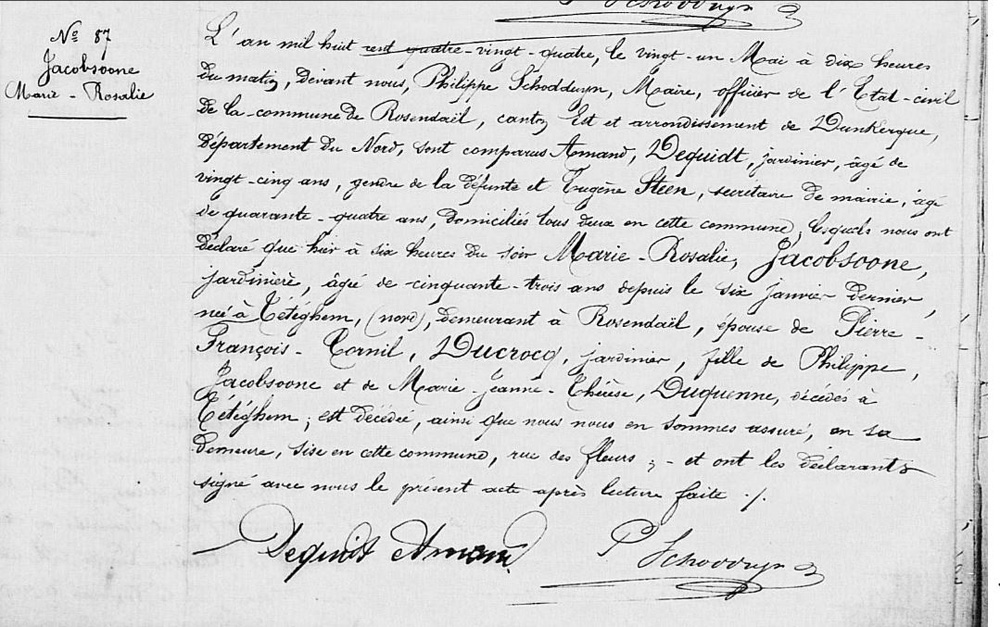 P Schodduyn
Nº 87
Jacobsoone
Marie-Rosalie
L'an mil huit cent quatre-vingt-quatre, le vingt-un Mai à dix heures
du matin, devant nous, Philippe Schodduyn, Maire, officier de l'Etat-civil
de la commune de Rosendaël, canton Est et arrondissement de Dunkerque,
département du Nord, sont comparus Amand, Dequidt, jardinier, âgé de
vingt-cinq ans, gendre de la défunte et Eugène Steen, secrétaire de mairie, âgé
de quarante-quatre ans, domiciliés tous deux en cette commune, lesquels nous ont
déclaré que hier à six heures du soir Marie-Rosalie, Jacobsoone,
jardinière, âgée de cinquante-trois ans depuis le six janvier dernier
née à Tétéghem, (nord), demeurant à Rosendaël, épouse de Pierre-
François-Cornil, Ducrocq, jardinier, fille de Philippe,
Jacobsoone et de Marie-Jeanne-Thérèse, Duquenne, décédés à
Tétéghem; est décédée, ainsi que nous nous en sommes assuré, en sa
demeure, sise en cette commune, rue des fleurs; - et ont les déclarants
signé avec nous le présent acte après lecture faite ./.
Dequidt Amand P Schodduyn